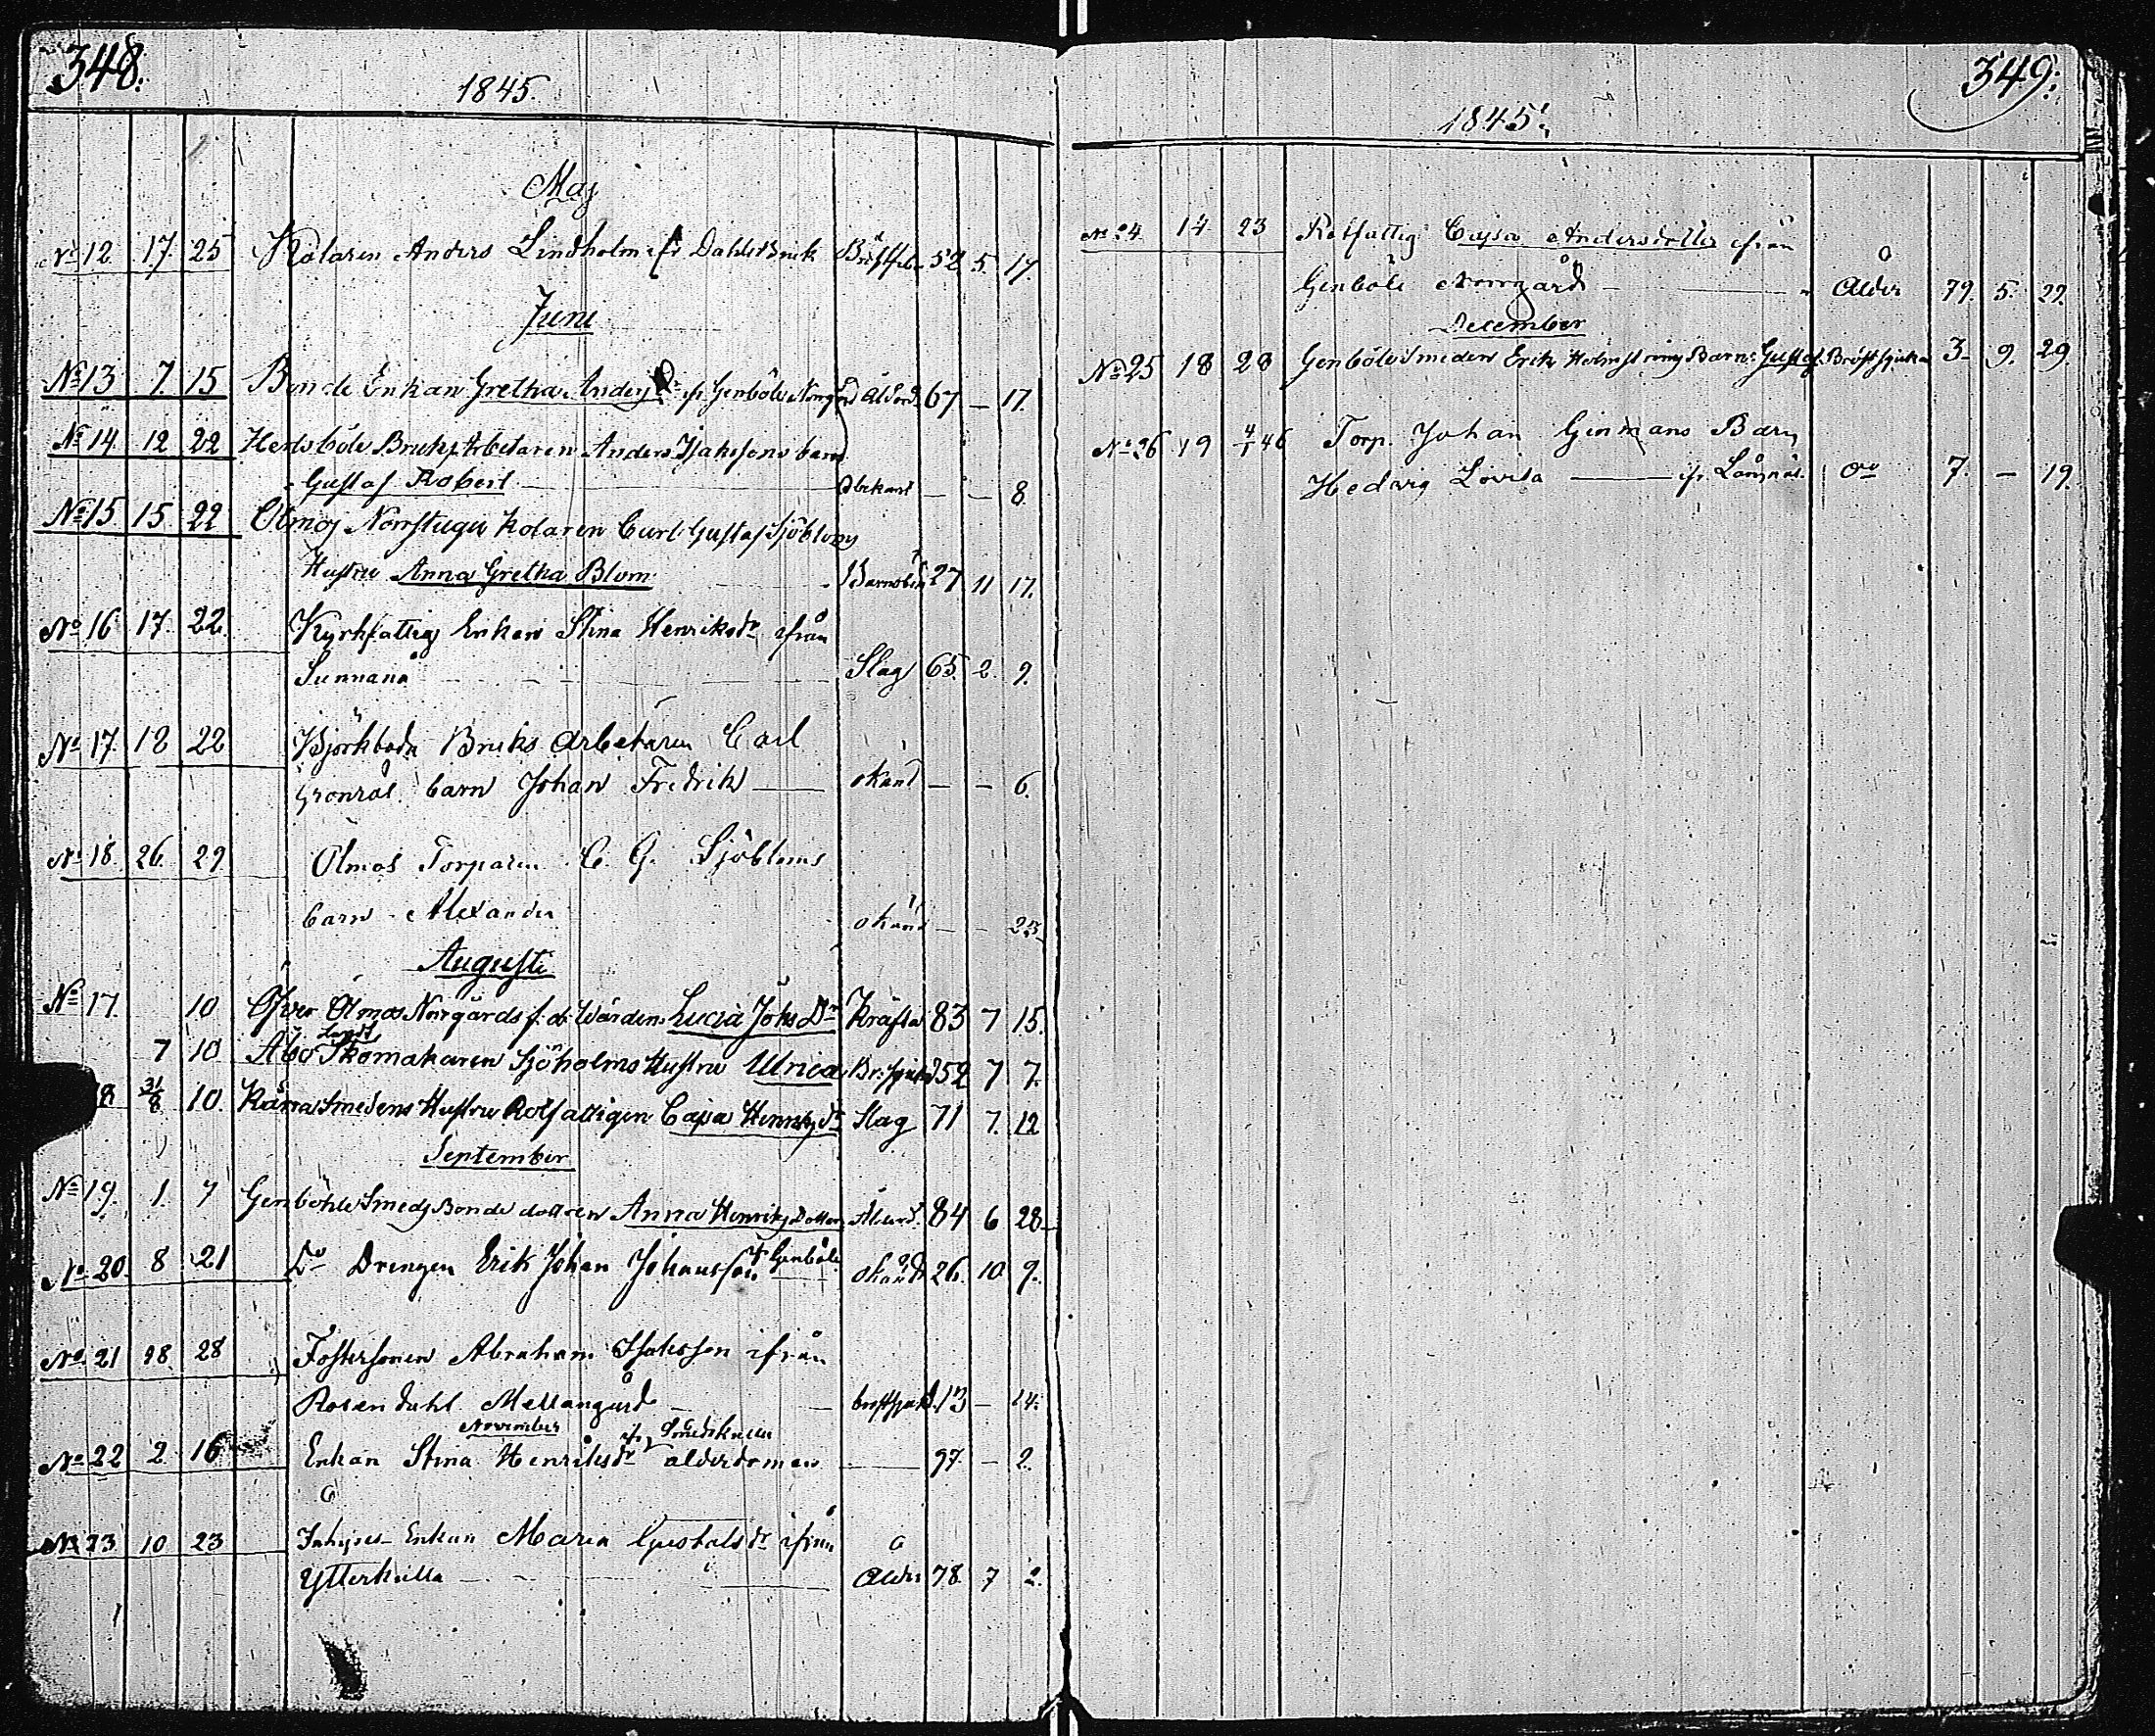 348.
1845.
Maj
No 12. 17. 25 Kolaren Anders Lindholm ifr Dahls Bruk Bröstfeber 52. 5. 17.
Juni
No 13 7. 15 Bonde Enkan Gretha Anders Dr ifr Genböle Norrgård Ålderd. 67 — 17.
No 14. 12 22 Herlsböle Bruks Arbetaren Anders Isakssons barn
Gustaf Robert — Obekant — — 8.
No 15. 15 22 Ölmos Norrstugu Kolaren Carl Gustaf Sjöbloms
Hustru Anna Gretha Blom Barnsbörd 27 11 17.
No 16 17. 22. Kyrkfattig Enkan Stina Henriksdr ifrån
Sunnanå — Slag 65. 2. 9.
No 17. 18 22 Björkboda Bruks Arbetaren Carl
Grönros barn Johan Fredrik — okänd — — 6.
No 18. 26. 29 Ölmos Torparen C. G. Sjöbloms
barn Alexander okänd — — 23.
Augusti
No 17. 10 Öfver Ölmos Norrgårds f. d. Värdin Lucia Johs Dr Kräfta 83 7 15.
7 10 Åbo Landt Skomakaren Sjöholms Hustru Ulrica Br:sjukd 52 7 7.
18 31/8 10. Kärra Smedens Hustru Rotfattigen Cajsa Henriks dr Slag 71 7. 12
September
No 19. 1. 7 Genböhle Smeds Bonde dottren Anna Henriks Dotter Ålderd. 84 6 28
No 20. 8 21 Do Drengen Erik Johan Johansson fr Genböle okänd 26. 10 9.
No 21 18 28 Fostersonen Abraham Isaksson ifrån
Rosendahl Mellangård — bröstsjukd. 13 — 14.
November
No 22 2 16 Enkan Stina Henriksdr ifr Smedskulla ålderdomen — 97. — 2.
No 23 10 23 Inhyses Enkan Maria Gustafsdr ifrån
Ytterkulla — Ålder 78. 7 2.
349.
1845.
No 24. 14 23 Rotfattig Cajsa Andersdotter ifrån
Genböle Norrgård — Ålder 79. 5. 29.
December
No 25 18 28 Genböle Smeden Erik Holmströms Barn: Gustaf. Bröstsjukan 3 9. 29.
No 26 19 4/1 46 Torp. Johan Ginmans Barn
Hedvig Lovisa — ifr Långnäs. do 7. — 19.